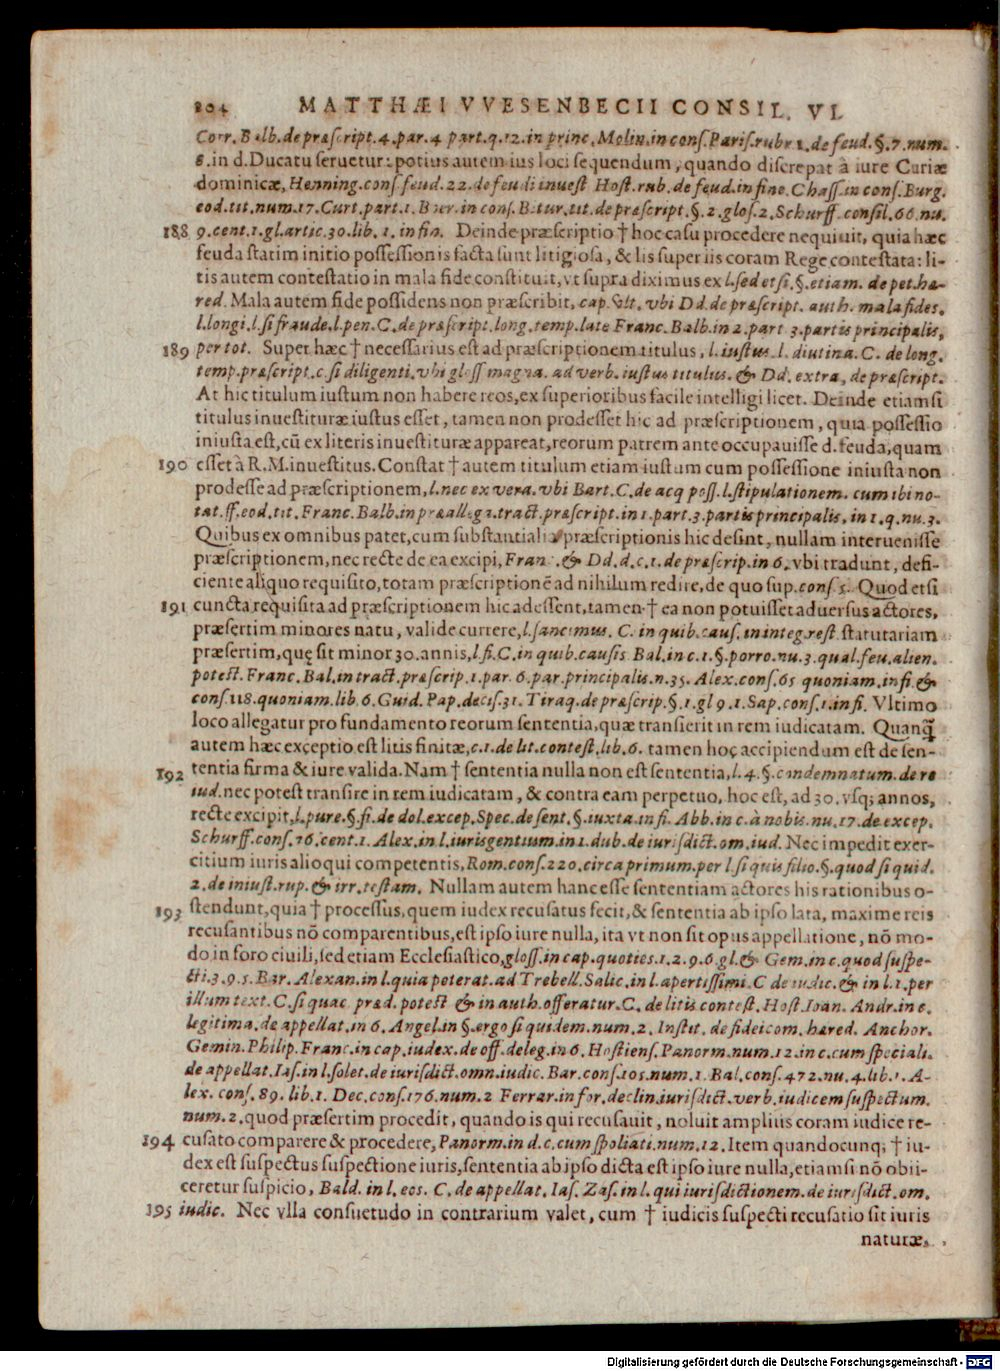 804 MATTHÆI VVESENBECII CONSIL. VI.
Corr. Balb. de præſcript. 4. par. 4 part. q. 12. in princ. Molin. in conſ. Pariſ. rubr 1. de feud. §. 7. num.
8. in d. Ducatu ſeruetur: potius autem ius loci ſequendum, quando diſcrepat à iure Curiæ
dominicæ, Henning. conſ feud. 22. de feudi inueſt Hoſt. rub. de feud. in fine. Chaſſ. in conſ. Burg.
eod. tit. num. 17. Curt. part. 1. Boer. in conſ. Bitur. tit. de præſcript. §. 2. gloſ. 2. Schurff conſil. 66. nu.
188 9. cent. 1. gl. artic. 30. lib. 1. in fin. Deinde præſcriptio † hoc caſu procedere nequiuit, quia hæc
feuda ſtatim initio poſſeſſionis facta ſunt litigioſa, & lis ſuper iis coram Rege conteſtata: li-
tis autem conteſtatio in mala fide conſtituit, vt ſupra diximus ex l. ſed et ſi. §. etiam. de pet. hæ-
red. Mala autem fide poſſidens non præſcribit, cap. vlt. vbi Dd. de præſcript. auth. mala fides.
l. longi. l. ſi fraude. l. pen. C. de præſcript. long. temp. late Franc. Balb. in 2. part 3. partis principalis,
189 per tot. Super hæc † neceſſarius eſt ad præſcriptionem titulus, l. iuſtus. l. diutina. C. de long.
temp. præſcript. c. ſi diligenti. vbi gloſſ magna. ad verb. iuſtus titulus. & Dd. extra, de præſcript.
At hic titulum iuſtum non habere reos, ex ſuperioribus facile intelligi licet. Deinde etiamſi
titulus inueſtituræ iuſtus eſſet, tamen non prodeſſet hic ad præſcriptionem, quia poſſeſſio
iniuſta eſt, cū ex literis inueſtituræ appareat, reorum patrem ante occupauiſſe d. feuda, quam
190 eſſet à R. M. inueſtitus. Conſtat † autem titulum etiam iuſtum cum poſſeſſione iniuſta non
prodeſſe ad præſcriptionem, l. nec ex vera. vbi Bart. C. de acq poſſ. l. ſtipulationem. cum ibi no-
tat. ff. eod. tit. Franc. Balb. in præalleg 2. tract. præſcript. in 1. part. 3. partis principalis, in 1. q. nu. 3.
Quibus ex omnibus patet, cum ſubſtantialia præſcriptionis hic deſint, nullam interueniſſe
præſcriptionem, nec recte de ea excipi, Franc. & Dd. d. c. 1. de præſcrip. in 6. vbi tradunt, defi-
ciente aliquo requiſito, totam præſcriptionē ad nihilum redire, de quo ſup. conſ 5. Quod etſi
191 cuncta requiſita ad præſcriptionem hic adeſſent, tamen † ea non potuiſſet aduerſus actores,
præſertim minores natu, valide currere, l. ſancimus. C. in quib. cauſ. in integ. reſt ſtatutariam
præſertim, quę ſit minor 30. annis, l. fi. C. in quib. cauſis. Bal. in c. 1. §. porro. nu. 3. qual. feu. alien.
poteſt. Franc. Bal. in tract. præſcrip. 1. par. 6. par. principalis. n. 35. Alex. conſ. 65 quoniam. in fi. &
conſ. 118. quoniam. lib. 6. Guid. Pap. deciſ. 31. Tiraq. de præſcrip. §. 1. gl 9. 1. Sap. conſ. 1. in fi. Vltimo
loco allegatur pro fundamento reorum ſententia, quæ tranſierit in rem iudicatam. Quanq̃
autem hæc exceptio eſt litis finitæ, c. 1. de lit. conteſt. lib. 6. tamen hoc accipiendum eſt de ſen-
192 tentia firma & iure valida. Nam † ſententia nulla non eſt ſententia, l. 4. §. condemnatum. de re
iud. nec poteſt tranſire in rem iudicatam, & contra eam perpetuo, hoc eſt, ad 30. vſq; annos,
recte excipit, l. pure. §. fi. de dol. excep. Spec. de ſent. §. iuxta. in fi. Abb. in c. à nobis. nu. 17. de excep.
Schurff. conſ. 76. cent. 1. Alex. in l. iurisgentium. in 1. dub. de iuriſdict. om. iud. Nec impedit exer-
citium iuris alioqui competentis, Rom. conſ. 220. circa primum. per l. ſi quis filio. §. quod ſi quid.
2. de iniuſt. rup. & irr. teſtam. Nullam autem hanc eſſe ſententiam actores his rationibus o-
193 ſtendunt, quia † proceſſus, quem iudex recuſatus fecit, & ſententia ab ipſo lata, maxime reis
recuſantibus nō comparentibus, eſt ipſo iure nulla, ita vt non ſit opus appellatione, nō mo-
do in foro ciuili, ſed etiam Eccleſiaſtico, gloſſ. in cap. quoties. 1. 2. 9. 6. gl. & Gem. in c. quod ſuſpe-
cti. 3. 9. 5. Bar. Alexan. in l. quia poterat. ad Trebell. Salic. in l. apertiſſimi. C de iudic. & in l. 1. per
illum text. C. ſi quac præd. poteſt & in auth. offeratur. C. de litis conteſt. Hoſt. Ioan. Andr. in c.
legitima. de appellat. in 6. Angel. in §. ergo ſi quidem. num. 2. Inſtit. de fideicom. hæred. Anchor.
Gemin. Philip. Franc. in cap. iudex. de off. deleg. in 6. Hoſtienſ. Panorm. num. 12. in c. cum ſpeciali.
de appellat. Iaſ. in l. ſolet. de iuriſdict. omn. iudic. Bar. conſ. 105. num. 1. Bal. conſ. 472. nu. 4. lib. 1. A-
lex. conſ. 89. lib. 1. Dec. conſ. 176. num. 2 Ferrar. in for. declin. iuriſdict. verb. iudicem ſuſpectum.
num. 2. quod præſertim procedit, quando is qui recuſauit, noluit amplius coram iudice re-
194 cuſato comparere & procedere, Panorm. in d. c. cum ſpoliati. num. 12. Item quandocunq; † iu-
dex eſt ſuſpectus ſuſpectione iuris, ſententia ab ipſo dicta eſt ipſo iure nulla, etiamſi nō obii-
ceretur ſuſpicio, Bald. in l. eos. C. de appellat. Iaſ. Zaſ. in l. qui iuriſdictionem. de iuriſdict. om.
195 iudic. Nec vlla conſuetudo in contrarium valet, cum † iudicis ſuſpecti recuſatio ſit iuris
naturæ,
Digitalisierung gefördert durch die Deutsche Forschungsgemeinschaft - DFG